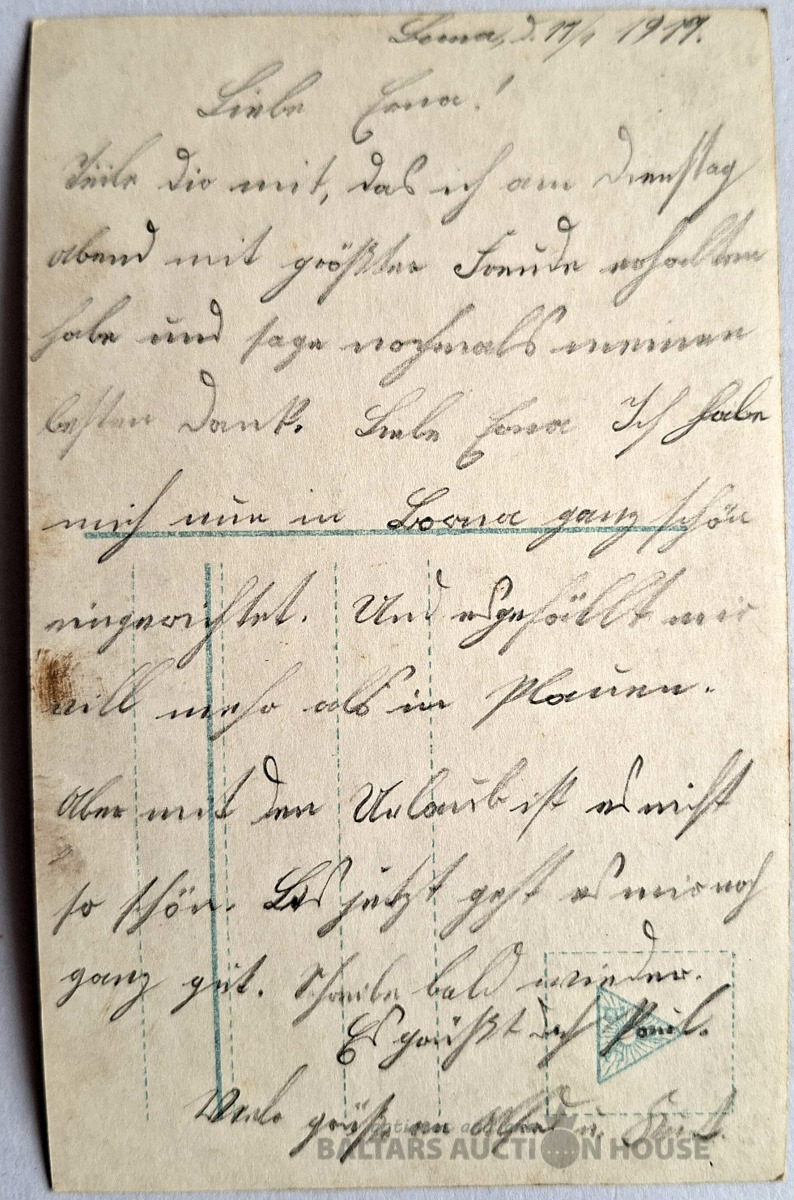 Borna, d. 11/1 1917.
Liebe Erna!
Teile dir mit, das ich am Dienstag
abend mit größter Freude erhalten
habe und sage nochmals meinen
besten Dank. Liebe Erna Ich habe
mich nun in Borna ganz schön
eingerichtet. Und es gefällt mir
vill mehr als in Plauen.
Aber mit den Urlaub ist es nicht
so schön. Bis jetzt geht es mir noch
ganz gut. Schreibe bald wieder.
Es grüßt dich Paul.
Viele grüße an u. Kurt.
BALTARS AUCTION HOUSE